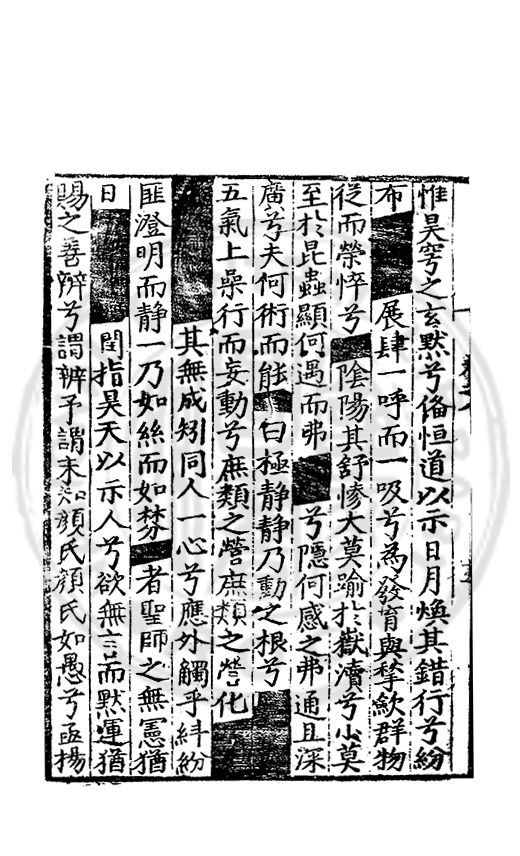 惟昊穹之玄默兮俻恒道以示日月煥其錯行兮紛
布 展肆一呼而一吸兮為發育與揫歛群物
從而榮悴兮 陰陽其舒慘大莫踰於嶽瀆兮小莫
至於昆蟲顯何遇而弗 兮隱何感之弗通且深
廣兮夫何術而能 曰極静静乃動之根兮
五氣上桑行而妄動兮庶類之營庶類之營化
其無成矧同人一心兮應外觸乎紏紛
匪澄明而静一乃如絲而如棼 者聖師之無憲猶
日 誾指昊天以示人兮欲無言而默運猶
賜之善辨兮謂辨予謂未知顔氏顔氏如愚兮亟揚